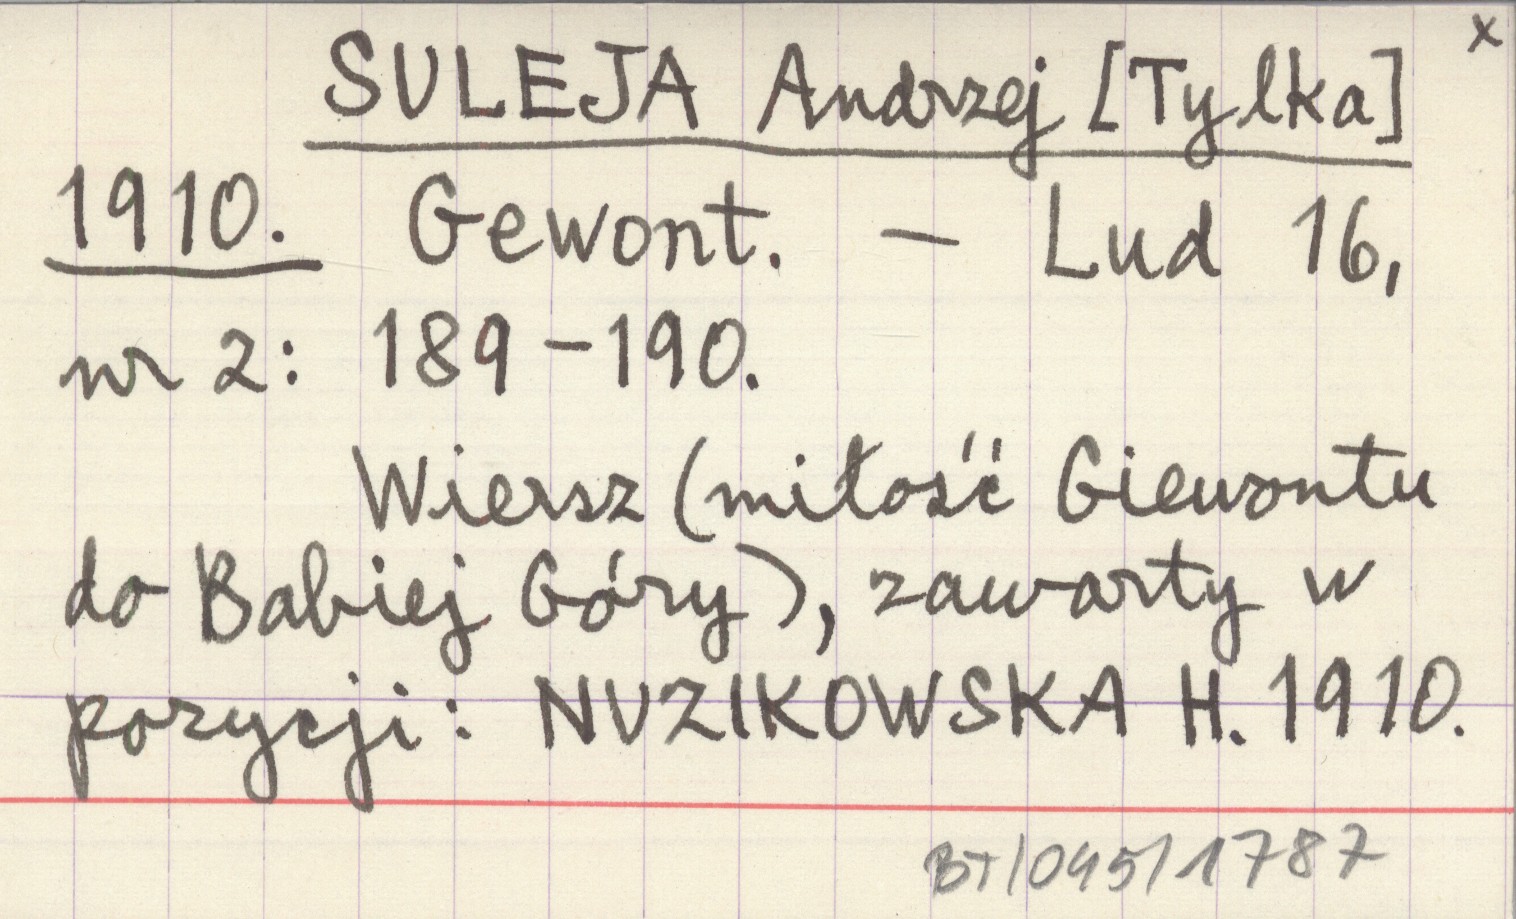 x
SULEJA Andrzej [Tylka]
1910. Gewont. – Lud 16,
nr 2: 189–190.
Wiersz (miłość Giewontu
do Babiej Góry), zawarty w
pozycji: NUZIKOWSKA H. 1910.
BT/045/1787